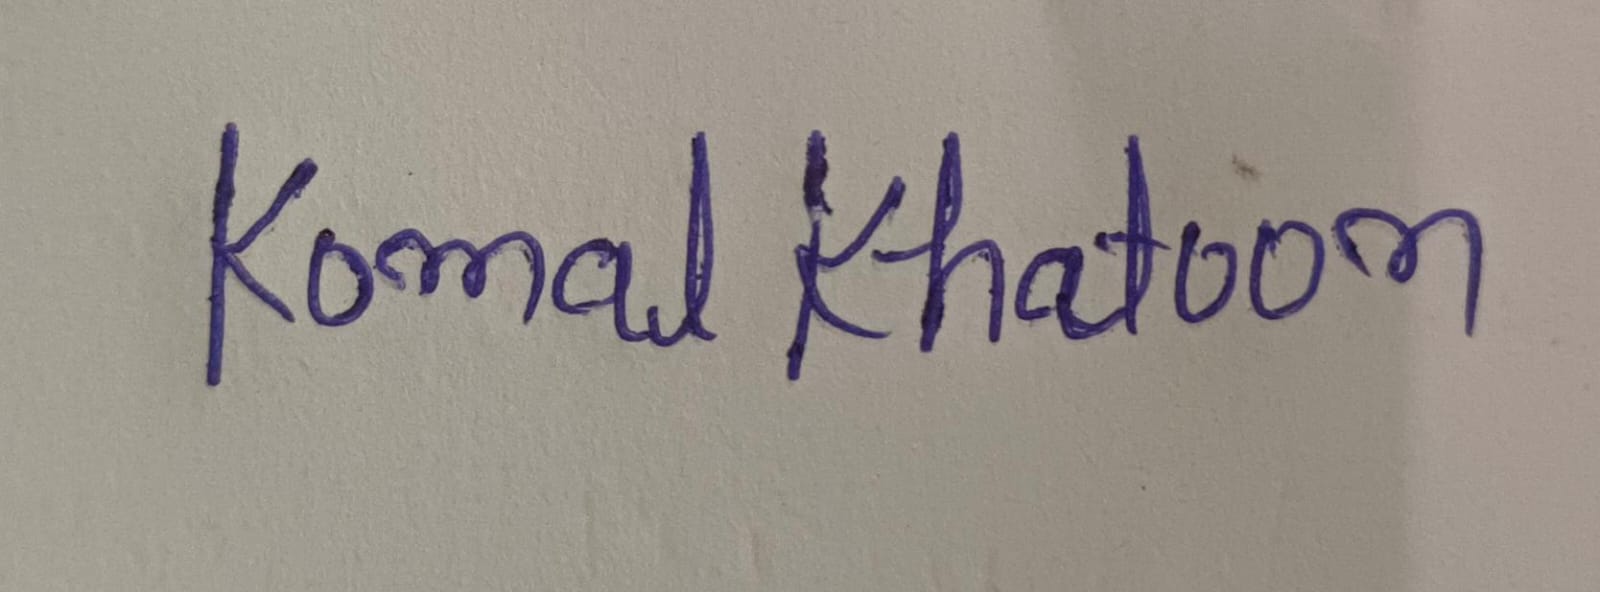 Komal Khatoon